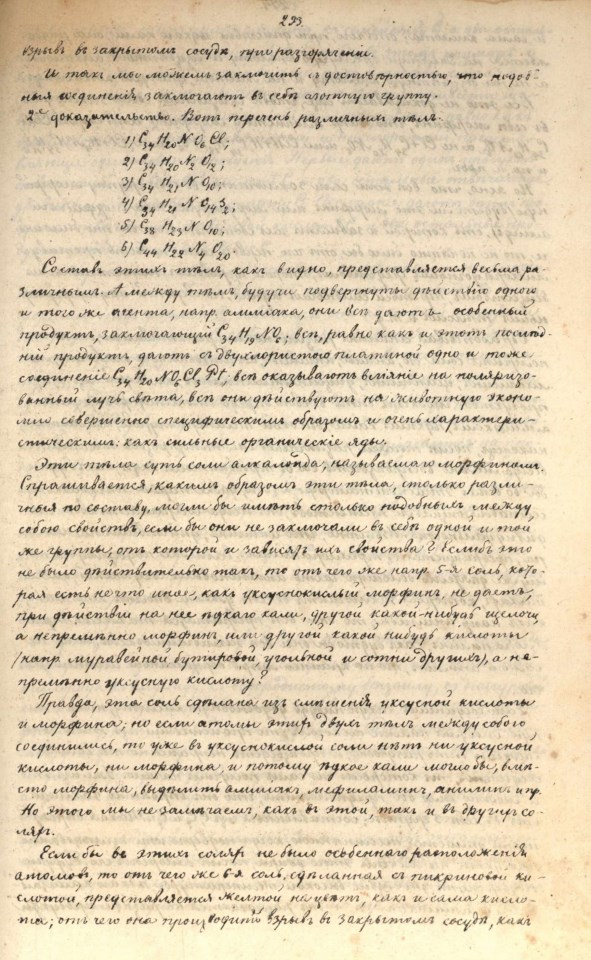 293.
взрывъ въ закрытомъ сосудѣ, при разгоряченіи.
И такъ мы можемъ заключить съ достовѣрностью, что подоб-
ныя соединенія заключаютъ въ себѣ азотную группу.
2ое доказательство. Вотъ перечень различныхъ тѣлъ.
1) C34 H20 N O6 Cl;
2) C34 H20 N2 O12;
3) C34 H21 N O10;
4) C34 H21 N O14 S2;
5) C38 H23 N O10;
6) C44 H22 N4 O20.
Составъ этихъ тѣлъ, какъ видно, представляется весьма ра-
зличнымъ. А между тѣмъ, будучи подвергнуты дѣйствію одного
и того же агента, напр. амміака, они всѣ даютъ особенный
продуктъ, заключающій C34 H19 N O6; всѣ, равно какъ и этотъ послѣд-
ній продуктъ, даютъ съ двухлористою платиной одно и тоже
соединеніе C34 H20 N O6 Cl3 Pt; всѣ оказываютъ вліяніе на поляризо-
ванный лучъ свѣта, всѣ они дѣйствуютъ на животную эконо-
мію совершенно специфическимъ образомъ и очень характери-
стическимъ: какъ сильные органическіе яды.
Эти тѣла суть соли алкалоида, называемаго морфиномъ.
Спрашивается, какимъ образомъ эти тѣла, столько разли-
чныя по составу, могли бы имѣть столько подобныхъ между
собою свойствъ, если бы они не заключали въ себѣ одной и той
же группы, отъ которой и зависятъ ихъ свойства? Еслибъ это
не было дѣйствительно такъ, то отъ чего же напр. 5-я соль, кото-
рая есть не что иное, какъ уксуснокислый морфинъ, не даетъ,
при дѣйствіи на нее ѣдкаго кали, другой какой-нибудь щелочи,
а непремѣнно морфинъ, или другой какой нибудь кислоты
(напр. муравейной, бутировой, угольной и сотни другихъ), а не-
премѣнно уксусную кислоту?
Правда, эта соль сдѣлана изъ смѣшенія уксусной кислоты
и морфина; но если атомы этихъ двухъ тѣлъ между собою
соединились, то уже въ уксуснокислой соли нѣтъ ни уксусной
кислоты, ни морфина, и потому ѣдкое кали могло бы, вмѣ-
сто морфина, выдѣлить амміакъ, мефиламинъ, анилинъ и пр.
Но этого мы не замѣчаемъ, какъ въ этой, такъ и въ другихъ со-
ляхъ.
Если бы въ этихъ соляхъ не было особеннаго расположенія
атомовъ, то отъ чего же 6-я соль, сдѣланная съ пикриновой ки-
слотой, представляется желтой на цвѣтъ, какъ и сама кисло-
та; отъ чего она производитъ взрывъ въ закрытомъ сосудѣ, какъ